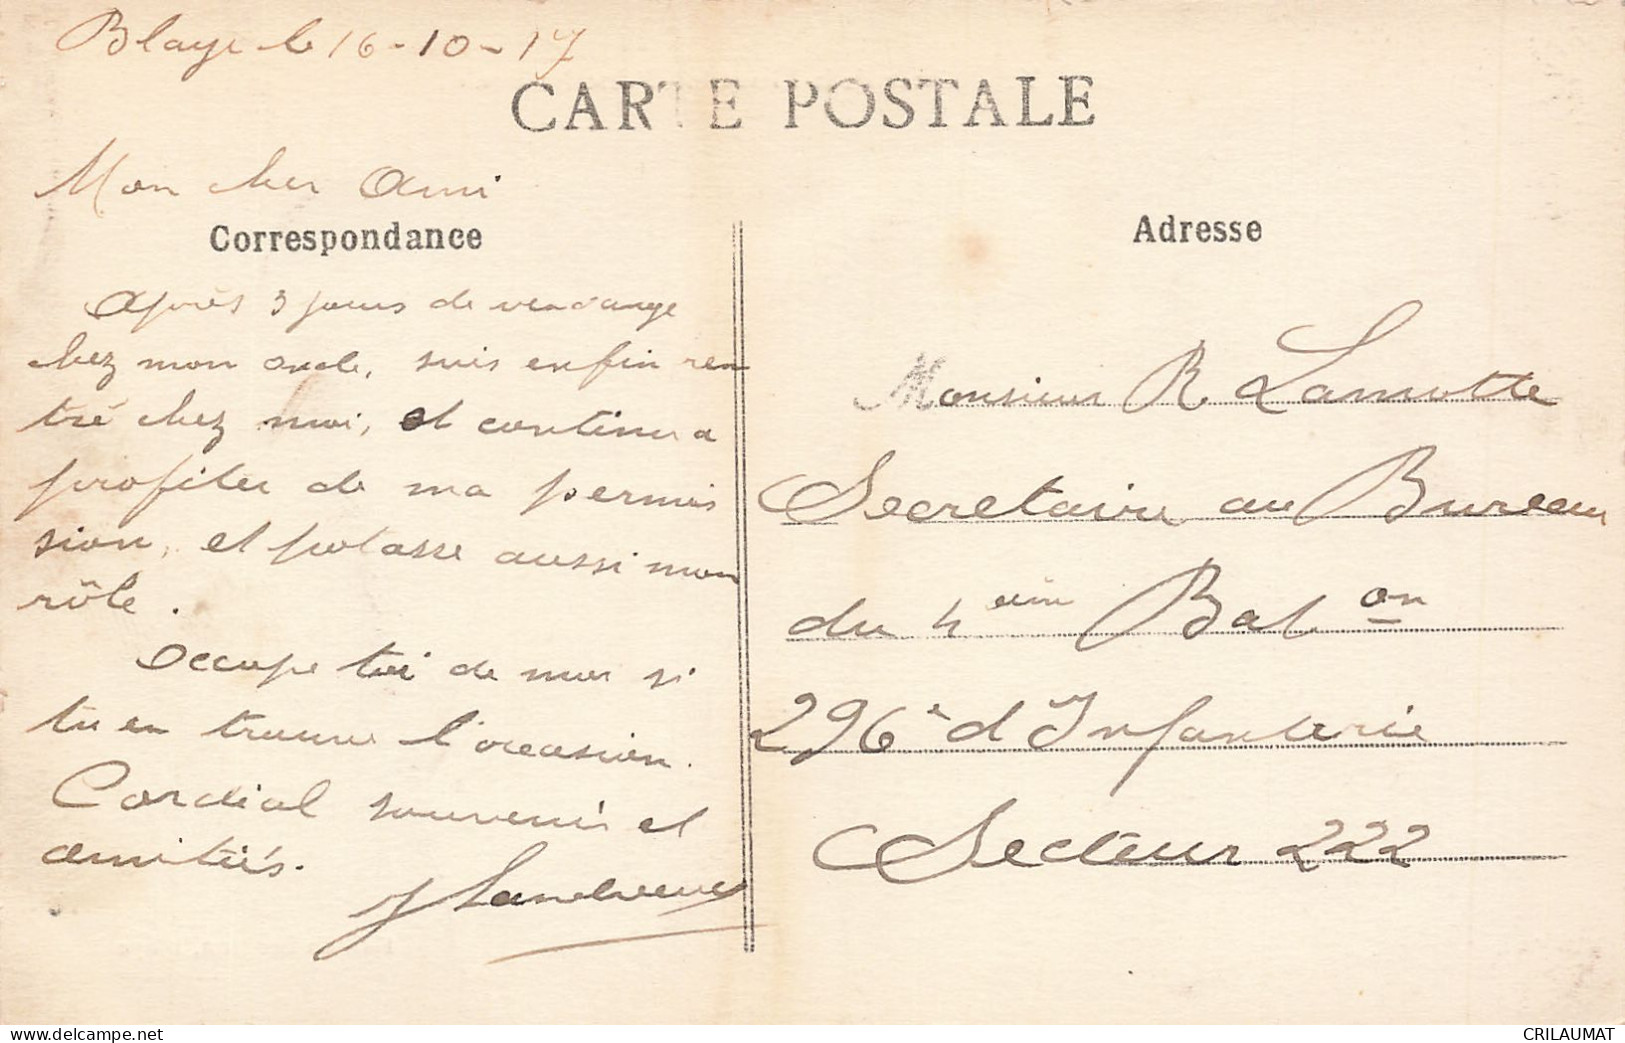 Blaye le 16-10-17
CARTE POSTALE
Mon cher Ami
Correspondance
Après 3 jours de vendange
chez mon oncle, suis enfin ren
tré chez moi, et continu a
profiter de ma permis
sion, et potasse aussi mon
rôle.
Occupe toi de moi si
tu en trouve l'occasion.
Cordial souvenir et
amitiés.
J
Adresse
Monsieur R Lamotte
Secretaire au Bureau
du 4 eme Bat on
296è d'Infanterie
Secteur 222
www.delcampe.net
CRILAUMAT